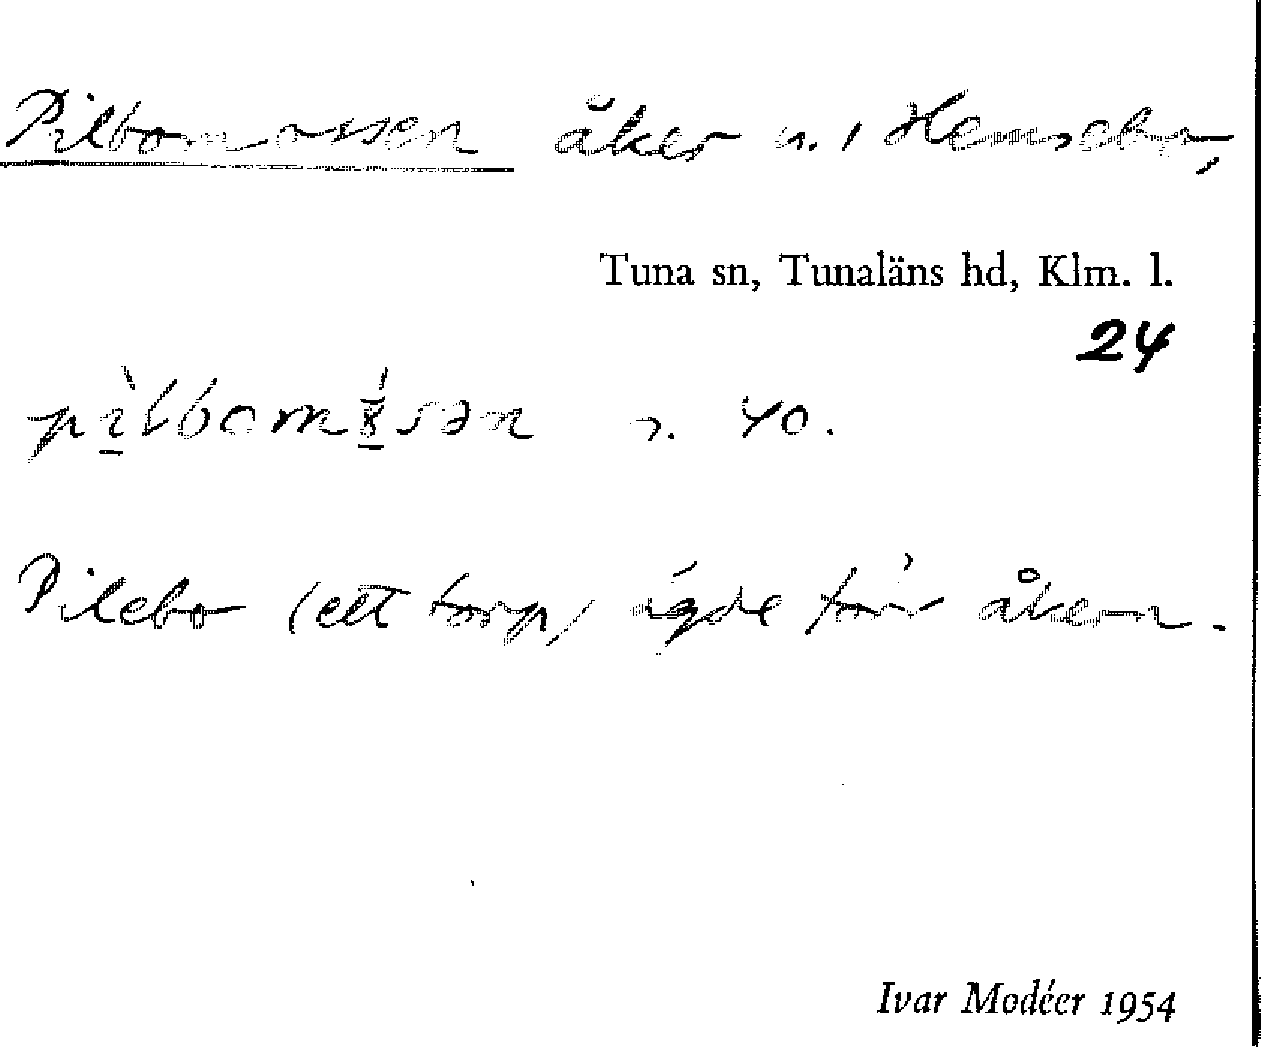 Pilbomossen åker u.
Tuna sn, Tunaläns hd, Klm. l.
24
40.
Pilebo (ett torp) ägde förr åkern.
Ivar Modéer 1954